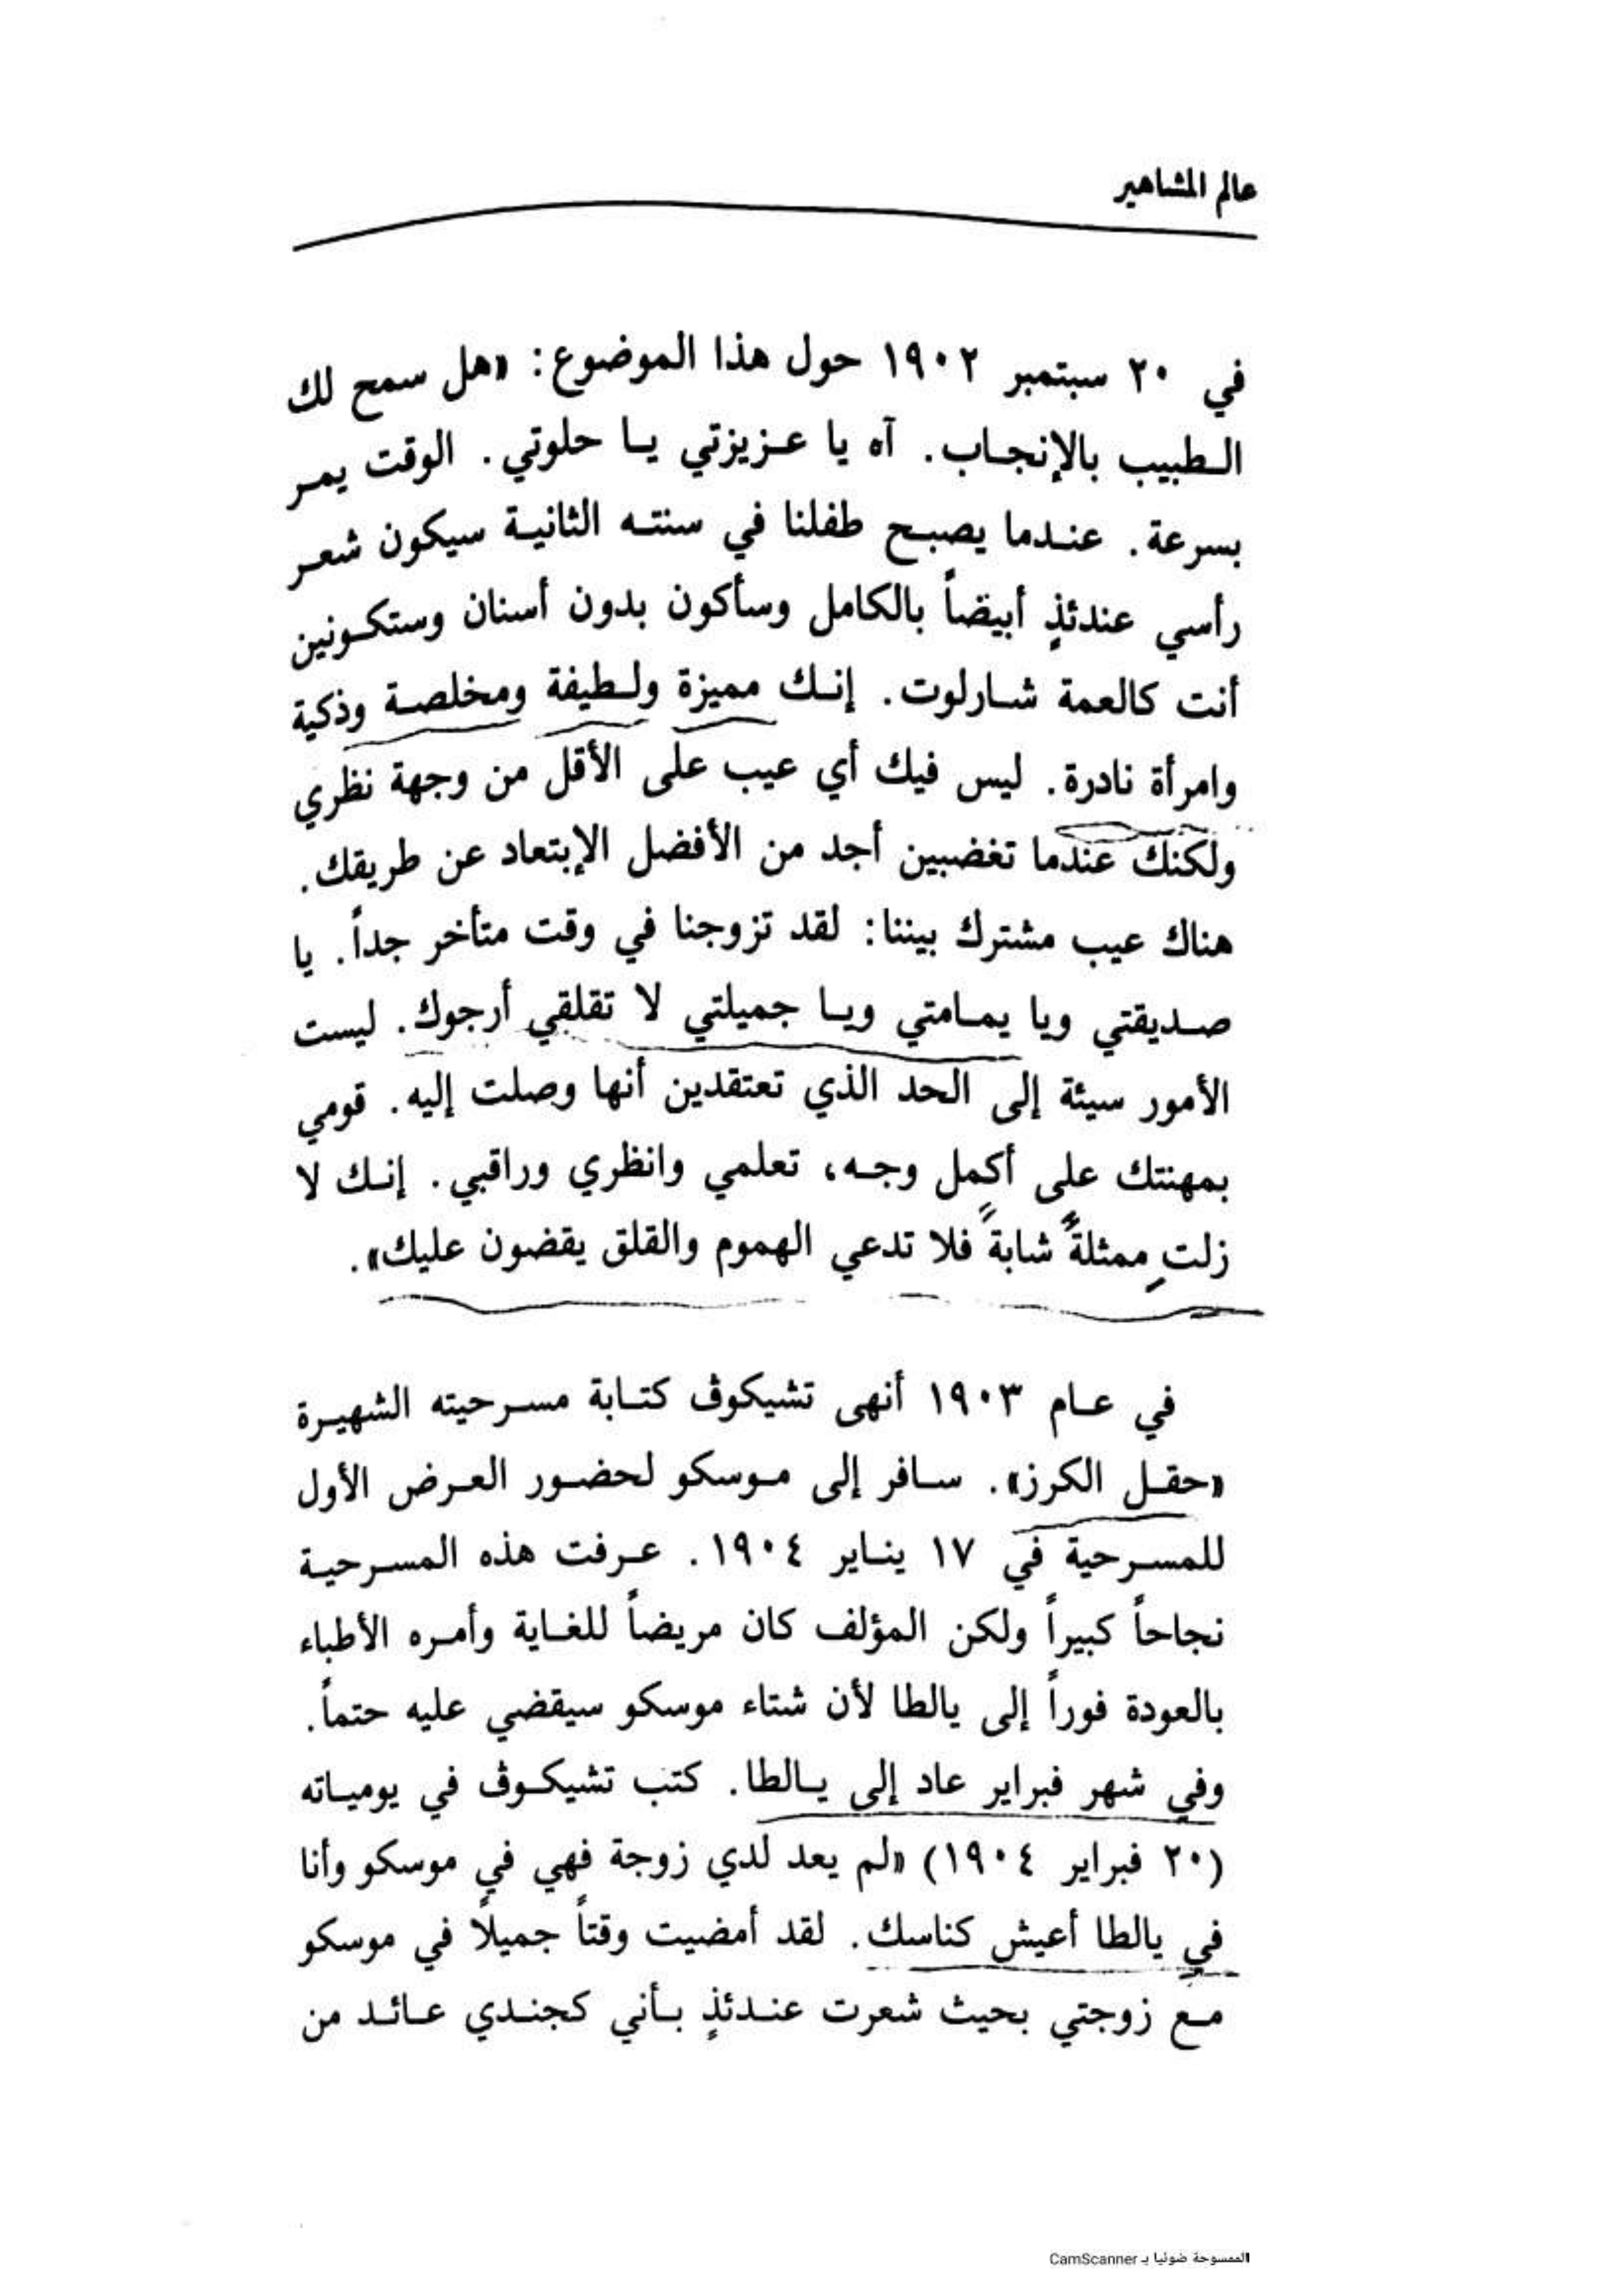 عالم المشاهير
في ٢٠ سبتمبر ١٩٠٢ حول هذا الموضوع: «هل سمح لك
الطبيب بالإنجاب. آه يا عزيزتي يا حلوتي. الوقت يمر
بسرعة. عندما يصبح طفلنا في سنته الثانية سيكون شعر
رأسي عندئذٍ أبيضاً بالكامل وسأكون بدون أسنان وستكونين
أنت كالعمة شارلوت. إنك مميزة ولطيفة ومخلصة وذكية
وامرأة نادرة. ليس فيك أي عيب على الأقل من وجهة نظري
ولكنك عندما تغضبين أجد من الأفضل الإبتعاد عن طريقك.
هناك عيب مشترك بيننا: لقد تزوجنا في وقت متأخر جداً. يا
صديقتي ويا يمامتي ويا جميلتي لا تقلقي أرجوك. ليست
الأمور سيئة إلى الحد الذي تعتقدين أنها وصلت إليه. قومي
بمهنتك على أكمل وجه، تعلمي وانظري وراقبي. إنك لا
زلتِ ممثلةً شابةً فلا تدعي الهموم والقلق يقضون عليك».
في عام ١٩٠٣ أنهى تشيكوف كتابة مسرحيته الشهيرة
«حقل الكرز». سافر إلى موسكو لحضور العرض الأول
للمسرحية في ١٧ يناير ١٩٠٤. عرفت هذه المسرحية
نجاحاً كبيراً ولكن المؤلف كان مريضاً للغاية وأمره الأطباء
بالعودة فوراً إلى يالطا لأن شتاء موسكو سيقضي عليه حتماً.
وفي شهر فبراير عاد إلى يالطا. كتب تشيكوف في يومياته
(٢٠ فبراير ١٩٠٤) «لم يعد لدي زوجة فهي في موسكو وأنا
في يالطا أعيش كناسك. لقد أمضيت وقتاً جميلاً في موسكو
مع زوجتي بحيث شعرت عندئذٍ بأني كجندي عائد من
الممسوحة ضوئيا بـ CamScanner